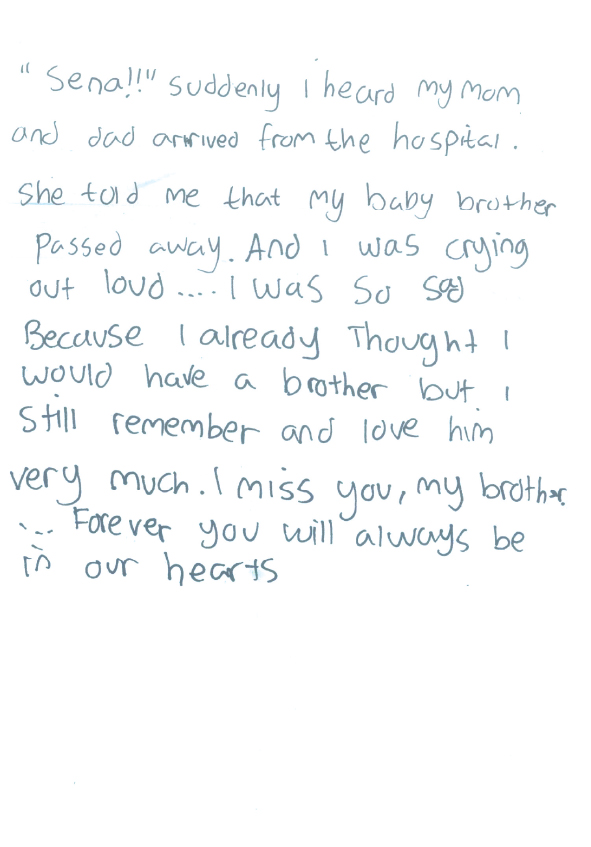 "Sena!!" suddenly I heard my Mom
and dad arrived from the hospital.
She told me that my baby brother
Passed away. And I was crying
out loud .... I was so sad
Because I already Thought I
would have a brother but I
Still remember and love him
very much. I miss you, my brother
... Forever you will always be
in our hearts